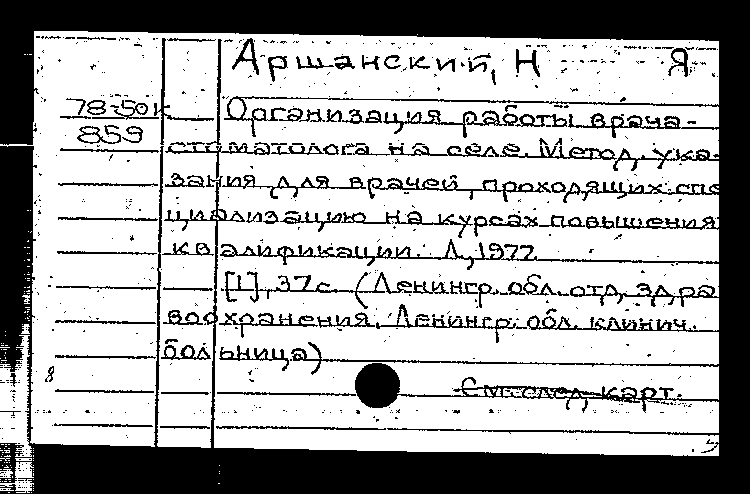 Аршанский, Н Я
78-50к Организация работы врача-
859
стоматолога на селе. Метод. ука-
зания для врачей, проходящих спе
циализацию на курсах повышения
квалификации. Л., 1977.
[1], 37 с. (Ленингр. обл. отд. здра
воохранения. Ленингр. обл. клинич.
больница)
8
См. след. карт.